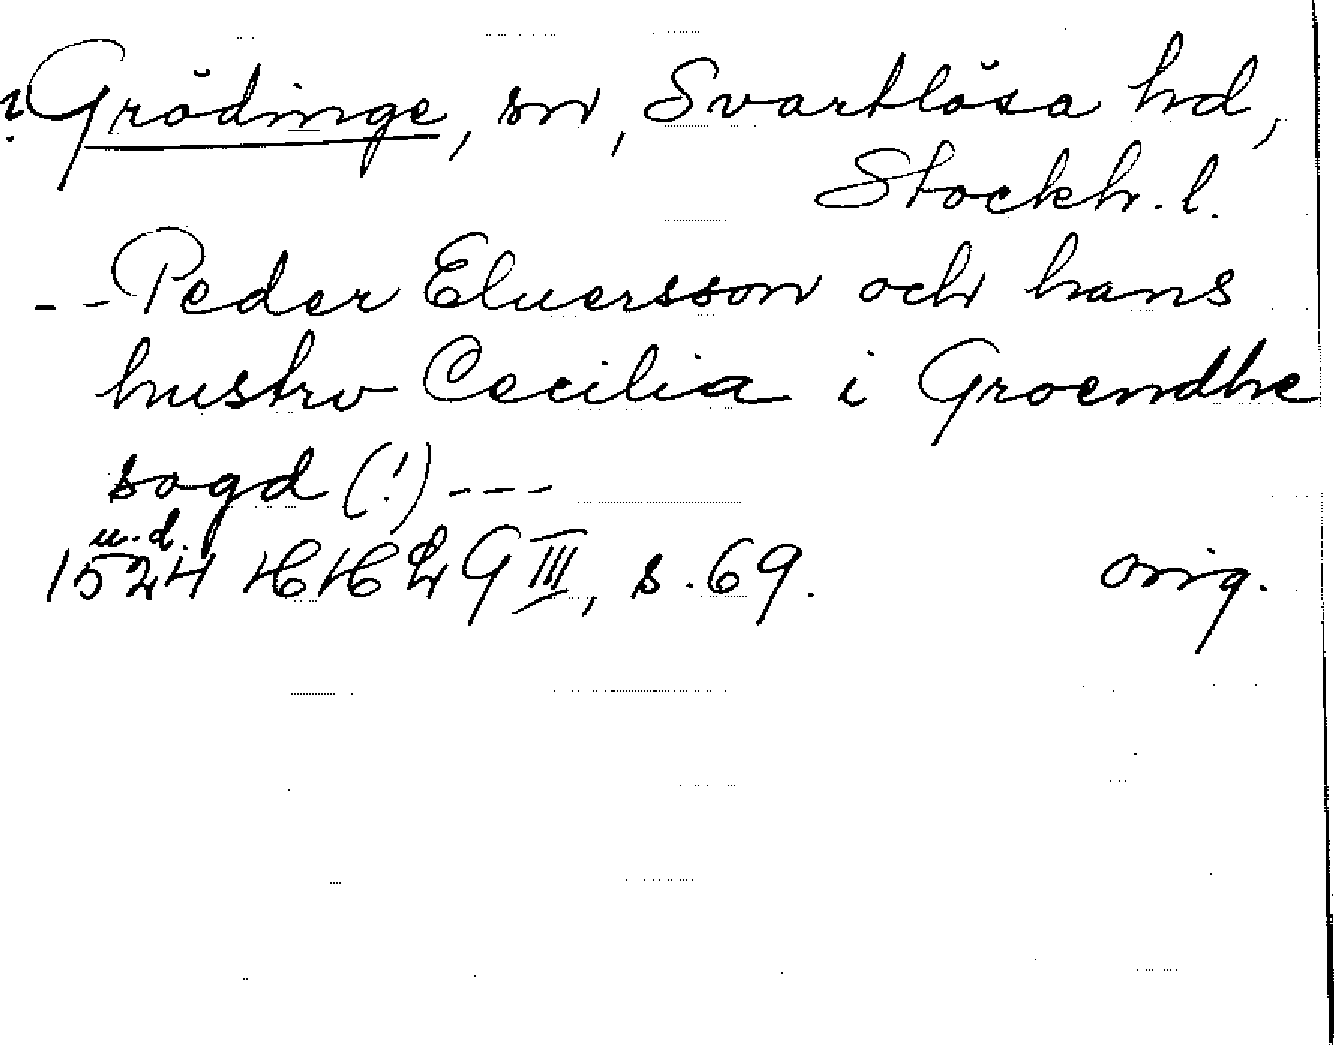 ? Grödinge, sn, Svartlösa hd,
Stockh. l.
- - Peder Eluersson och hans
hustrv Cecilia i Groendhe
sogd (!) - - -
u. d.
1524 HH 29 III, s. 69. orig.